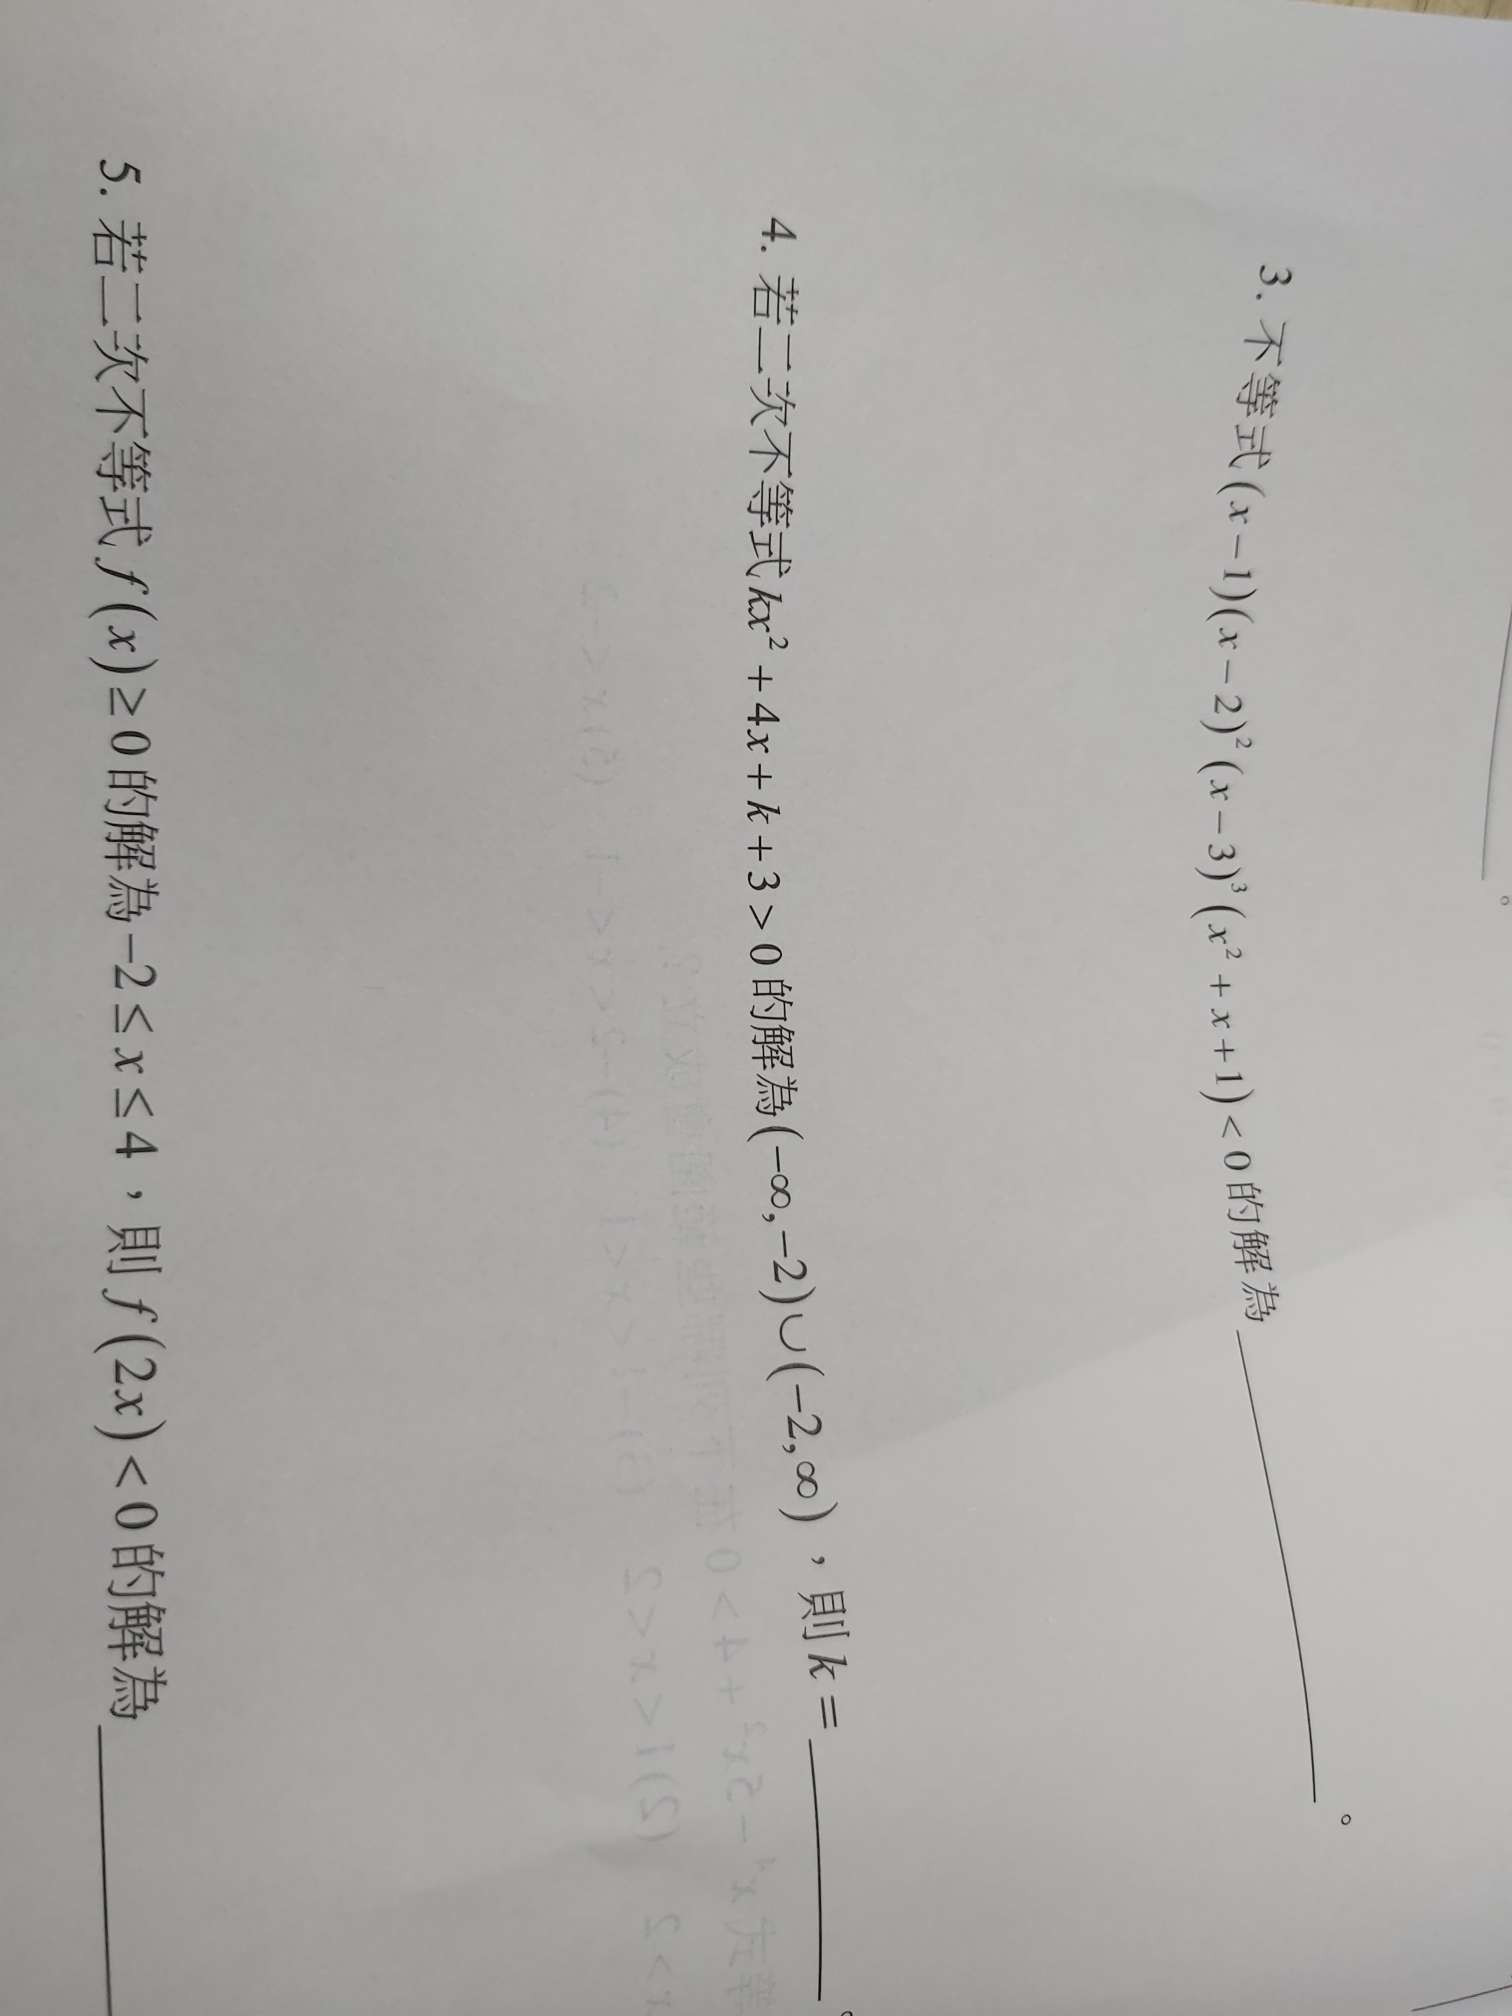 3. 不等式(x-1)(x-2)²(x-3)³(x²+x+1)<0的解為________。
4. 若二次不等式kx²+4x+k+3>0的解為(-∞,-2)∪(-2,∞)，則k=________。
5. 若二次不等式f(x)≥0的解為-2≤x≤4，則f(2x)<0的解為________